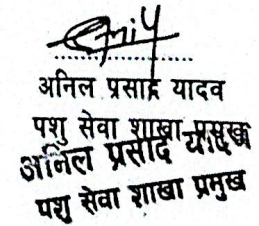 अनिल प्रसाद यादव
पशु सेवा शाखा प्रमुख
अनिल प्रसाद यादव
पशु सेवा शाखा प्रमुख